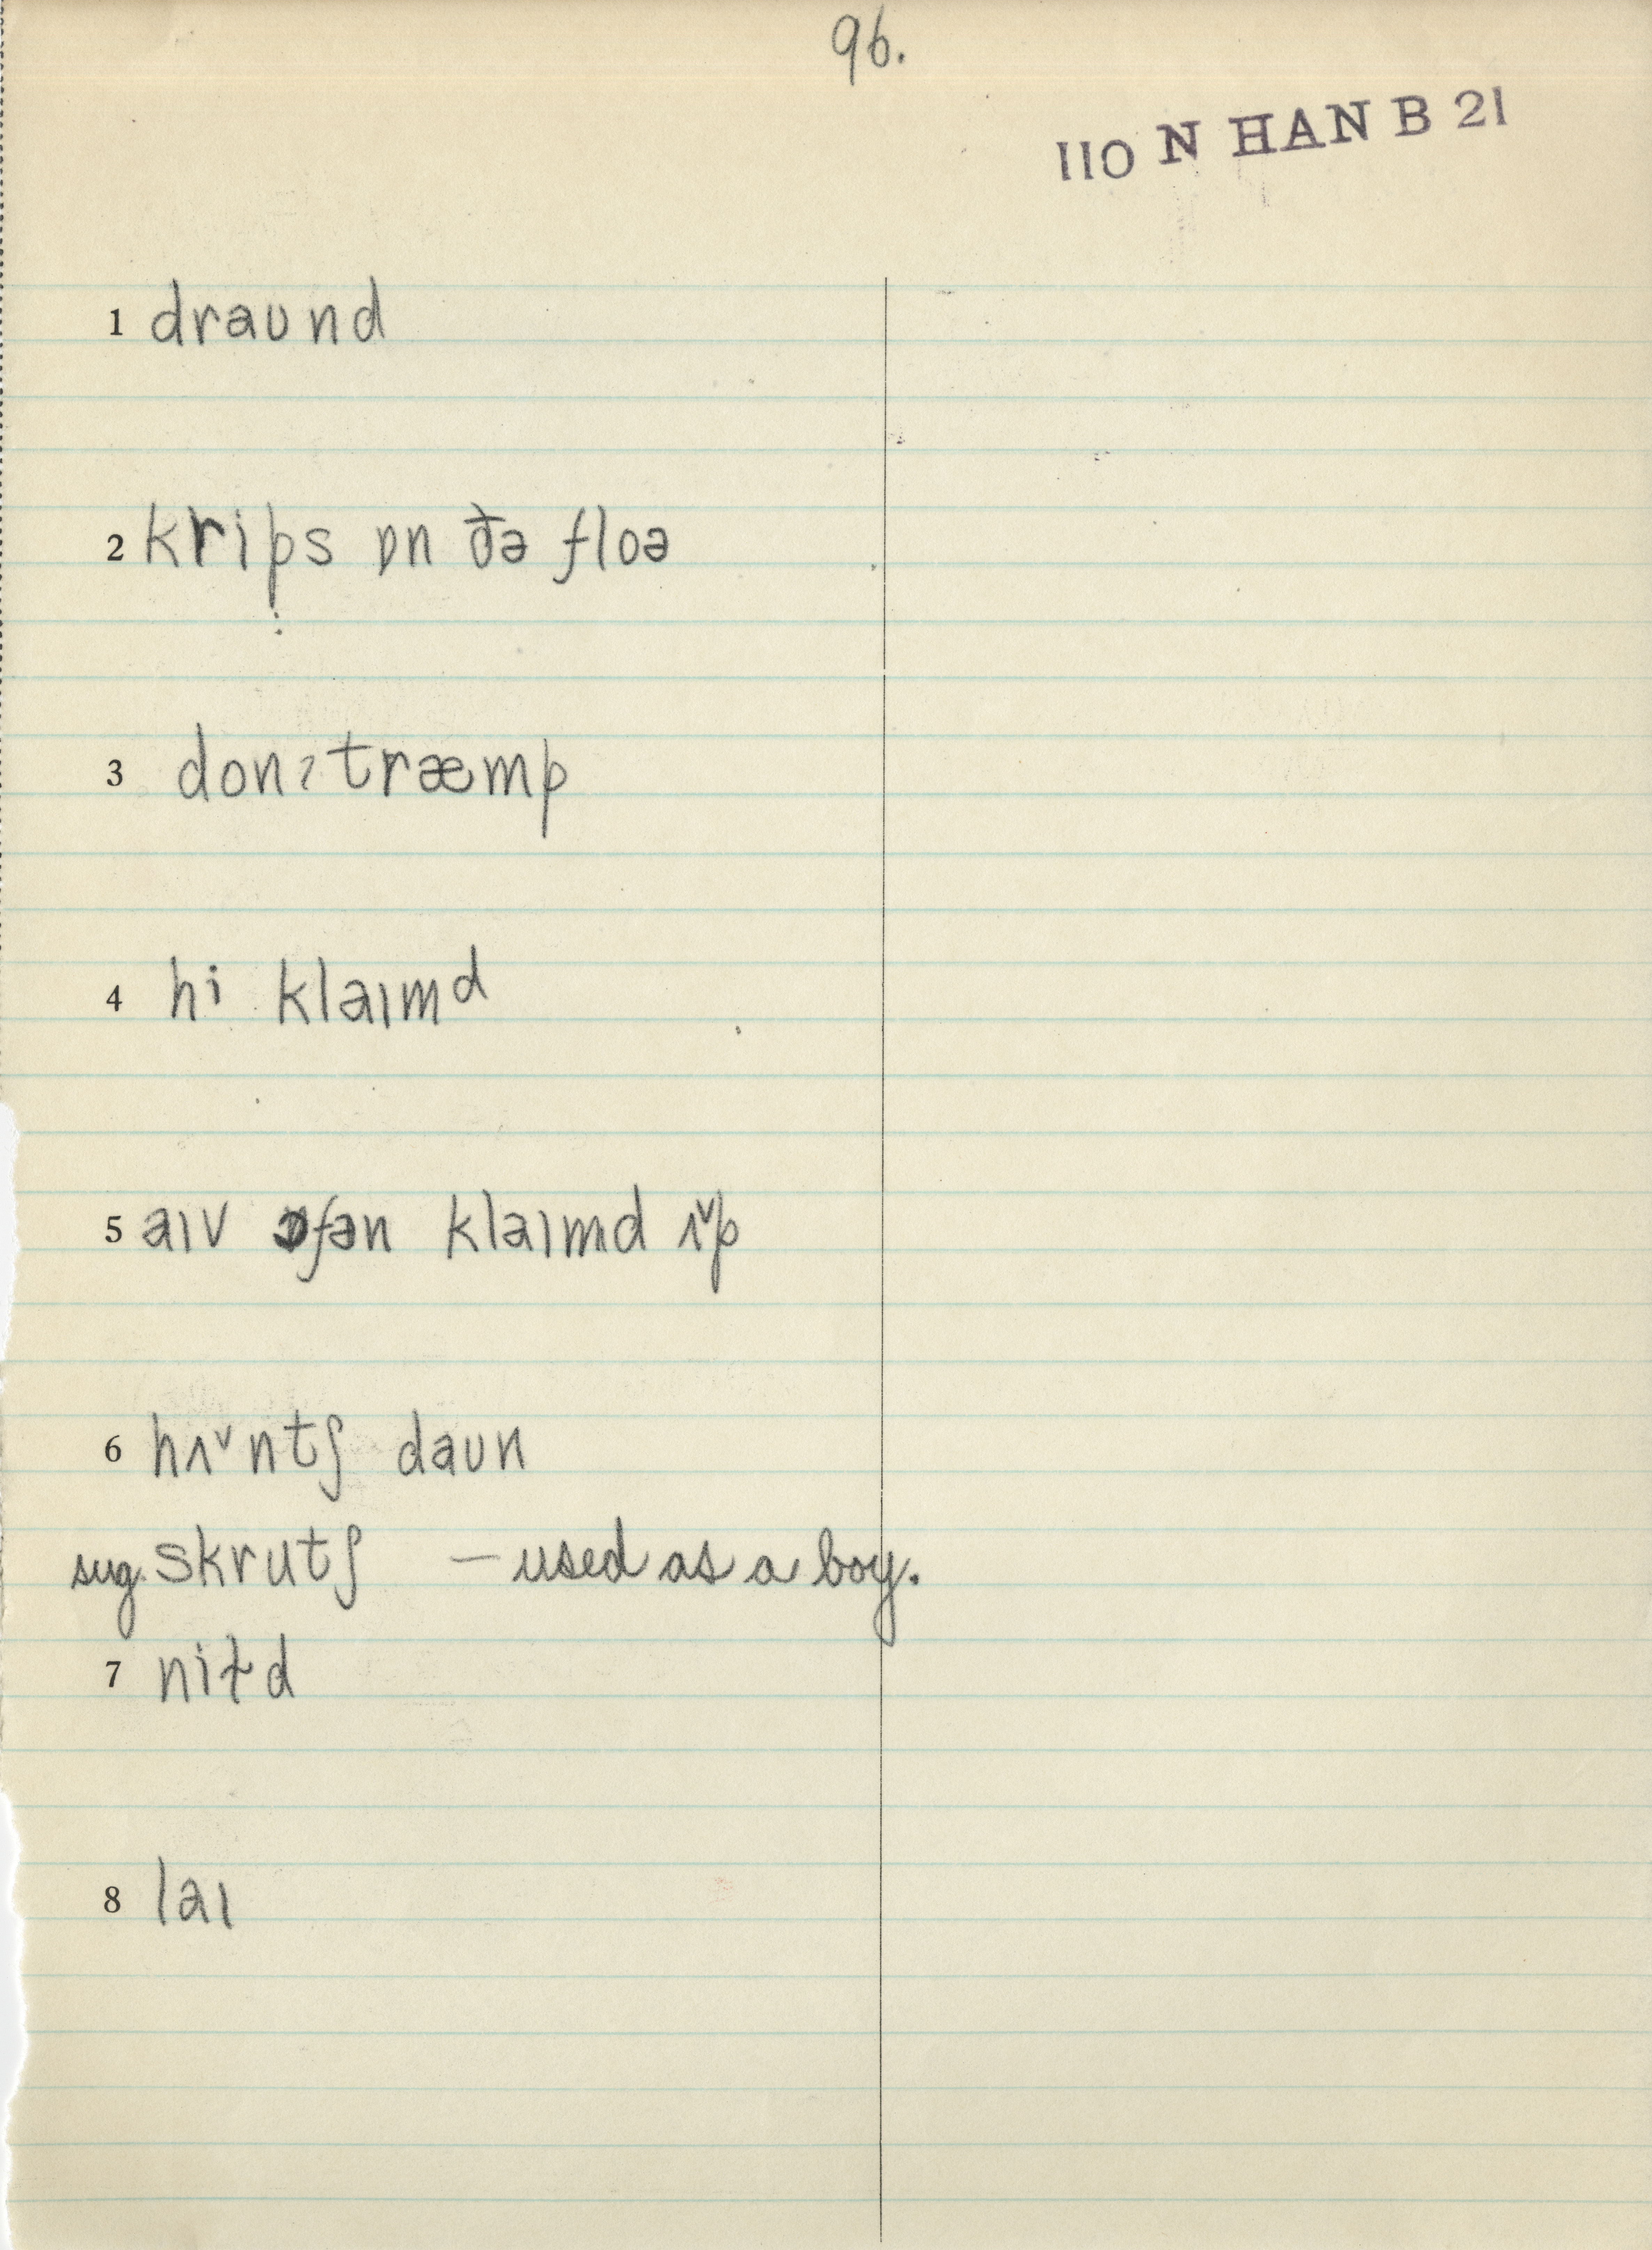 96.
110 N HAN B 21
1 draʊnd
2 krips ɒn ðə floə
3 donˀtræmp
4 hi klaɪmᵈ
5 aɪv ɒfən klaɪmd ʌ˅p
6 hʌ˅ntʃ daʊn
sug. skrutʃ — used as a boy.
7 niɫd
8 laɪ